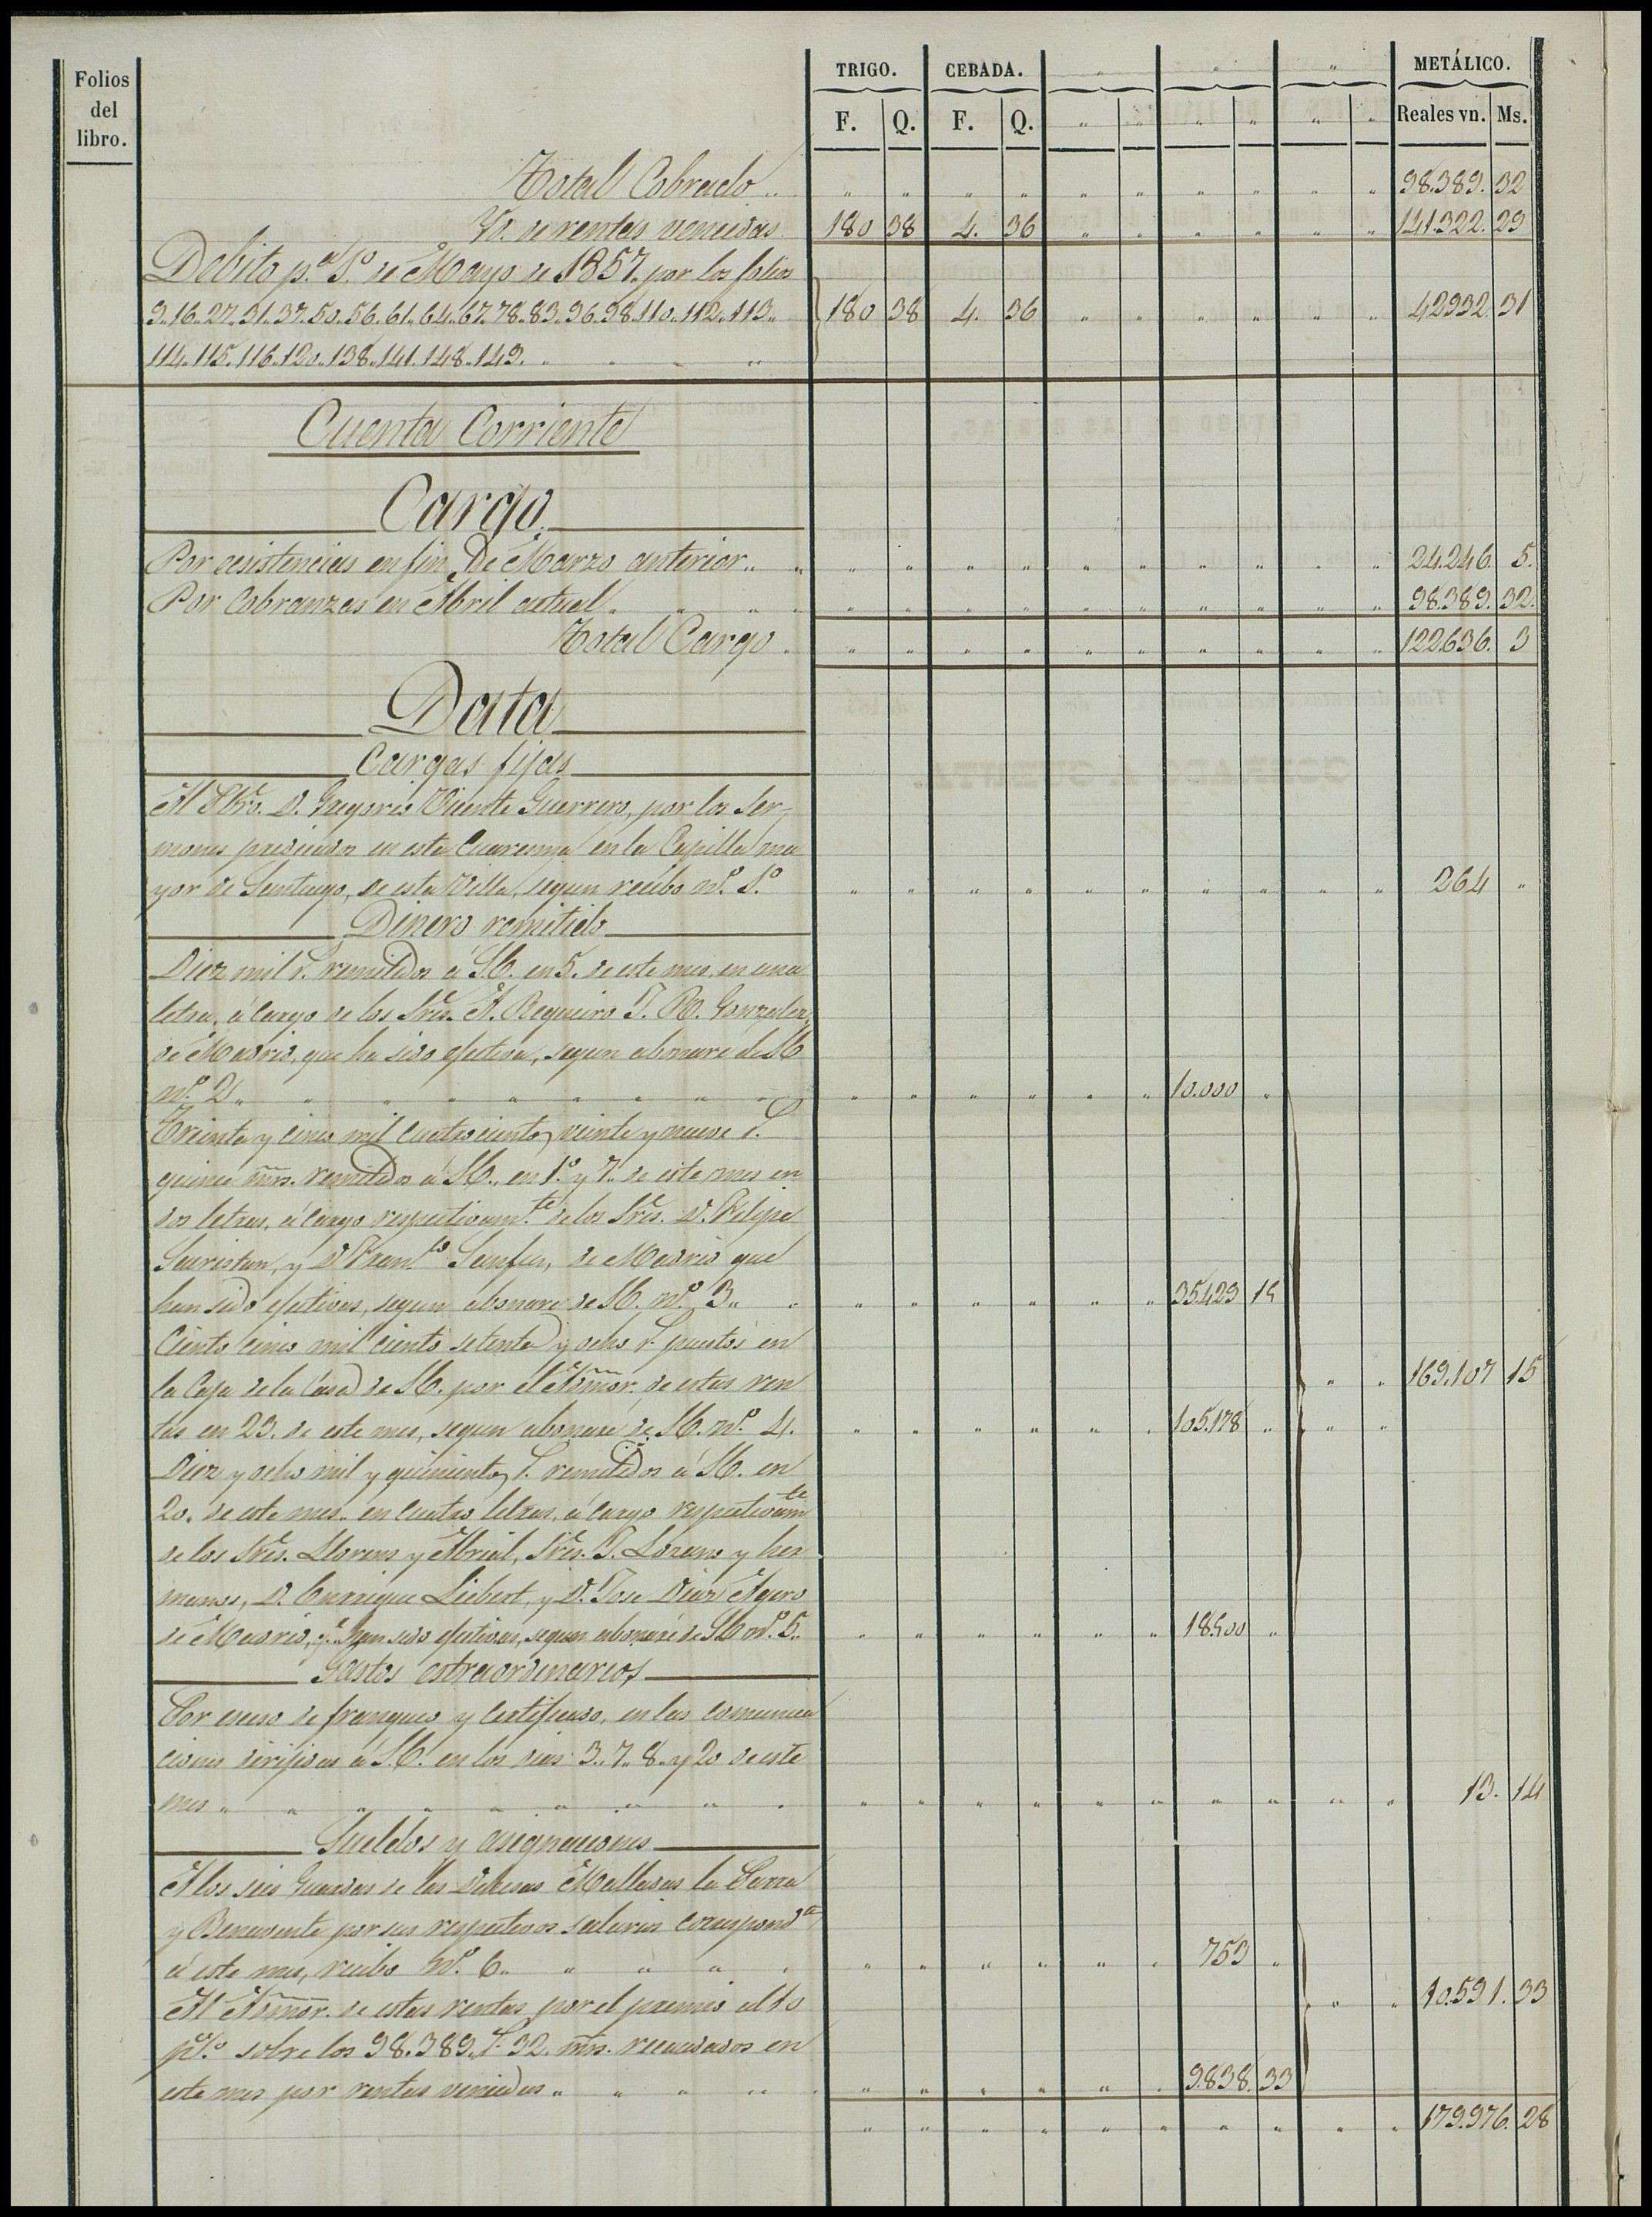 Folios del libro.
TRIGO. CEBADA. " " " METÁLICO.
F. Q. F. Q. " " " " " " Reales vn. Ms.
Total Cobrado " " " " " " " " " " 98.389. 32
Yd. de rentas vencidas 180 38 4. 36 " " " " " " 141.322. 29
Debito p.ª 1.º de Mayo de 1857. por los folios
9..16..27..31..37..50..56..61..64..67..78..83..96..98..110..112..113.. 180 38 4. 36 " " " " " " 42932. 31
114..115..116..120..138..141..148..149.
Cuenta Corriente
Cargo
Por existencias en fin De Marzo anterior " " " " " " " " " " 24.246. 5.
Por Cobranzas en Abril actual " " " " " " " " " " 98.389. 32.
Total Cargo " " " " " " " " " " 122.636. 3
Data
Cargas fijas
Al Pbro. D. Gregorio Vicente Guerrero, por los Ser-
mones predicados en esta Cuaresma en la Capilla ma
yor de Santiago, de esta Villa, segun recibo n.º 1.º " " " " " " " " " " 264 "
Dinero remitido
Diez mil r.s remitidos á S.E. en 5. de este mes, en una
letra, á cargo de los Sres. A. Requeiro J. M. Gonzalez,
de Madrid, que ha sido efectiva, segun abonare de S.E.
n.º 2 " " " " " " 10.000 "
Treinta y cinco mil cuatrocientos veinte y nueve r.s
quince mrs. remitidos á S.E., en 1.º y 7. de este mes en
dos letras, á cargo respectivam.te de los Sres. D. Felipe
y D. Fran.co de Madrid que
han sido efectivas, segun abonare de S.E. n.º 3 " " " " " " 35.429 15
Ciento cinco mil ciento setenta y ocho r.s puestos en
la Caja de la Casa de S.E. por el Admor. de estas ren " " 169.107 15
tas en 23. de este mes, segun abonare de S.E. n.º 4. " " " " " " 105.178 " " "
Diez y ocho mil y quinientos r.s remitidos á S.E. en
20. de este mes. en cuatro letras, á cargo respectivam.te
de los Sres. Llorens y Abrial, Sres. J. Lozano y her
manos, D. Enrrique Liebert, y D. Jose Diaz Agero
de Madrid, q.e han sido efectivas, segun abonaré de S.E. n.º 5. " " " " " " 18.500 "
Gastos estraordinarios
Por exceso de franqueo y Certificado, en las comunica
ciones dirijidas á S.E. en los dias 3..7..8..y 20 de este
mes " " " " " " " " " " 13. 14
Sueldos y asignaciones
A los seis Guardas de las Dehesas Malladas la Parra
y Benavente por sus respectivos salarios correspond.tes
á este mes, recibo n.º 6 " " " " " " 753 "
Al Admor. de estas rentas por el premio al 10 " " 10.591. 33
p% sobre los 98.389. r.s 32. mrs. recaudados en
este mes por rentas vencidas " " " " " " 9.838. 33
" " " " " " " " " " 179.976. 28